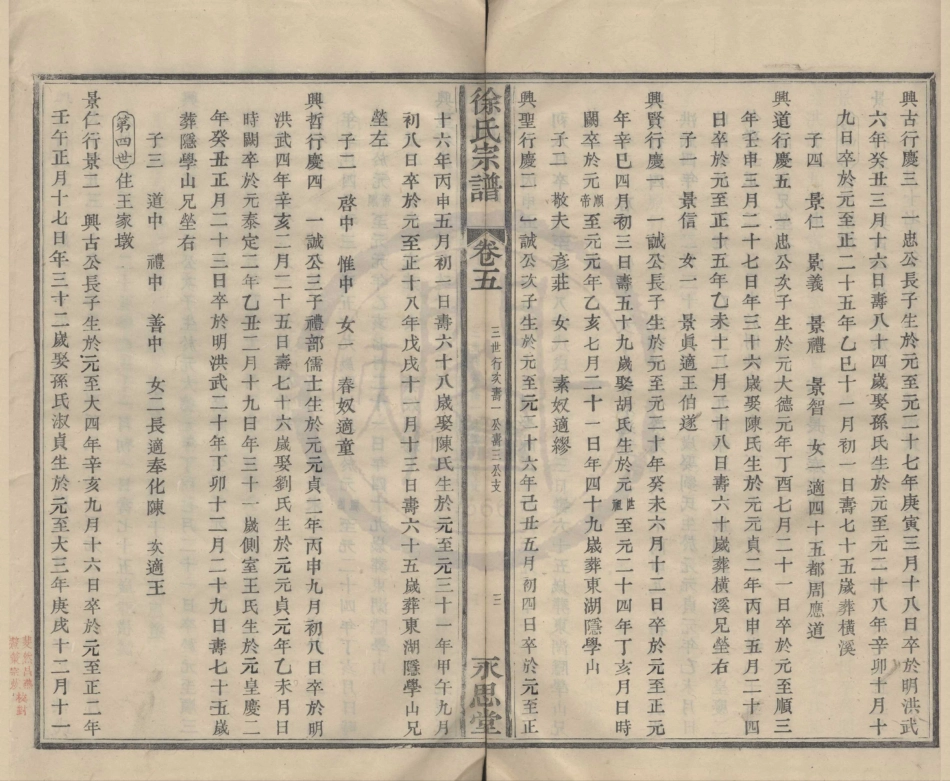 興古行慶三　一忠公長子生於元至元二十七年庚寅三月十八日卒於明洪武
六年癸丑三月十六日壽八十四歲娶孫氏生於元至元二十八年辛卯十月十
九日卒於元至正二十五年乙巳十一月初一日壽七十五歲葬橫溪
子四　景仁　景義　景禮　景智　女一適四十五都周應道
興道行慶五　一忠公次子生於元大德元年丁酉七月二十一日卒於元至順三
年壬申三月二十七日年三十六歲娶陳氏生於元元貞二年丙申五月二十四
日卒於元至正十五年乙未十二月二十八日壽六十歲葬橫溪兄塋右
子一　景信　女一　景眞適王伯遂
興賢行慶一　一誠公長子生於元至元二十年癸未六月十二日卒於元至正元
年辛巳四月初三日壽五十九歲娶胡氏生於元世祖至元二十四年丁亥月日時
闕卒於元順帝至元元年乙亥七月二十一日年四十九歲葬東湖隱學山
子二　敬夫　彥莊　女一　素奴適繆
興聖行慶二　一誠公次子生於元至元二十六年己丑五月初四日卒於元至正
徐氏宗譜
卷五
三世行次壽一公壽三公支
三
永思堂
十六年丙申五月初一日壽六十八歲娶陳氏生於元至元三十一年甲午九月
初八日卒於元至正十八年戊戌十一月十三日壽六十五歲葬東湖隱學山兄
塋左
子二　啓中　惟中　女一　春奴適童
興哲行慶四　一誠公三子禮部儒士生於元元貞二年丙申九月初八日卒於明
洪武四年辛亥二月二十五日壽七十六歲娶劉氏生於元元貞元年乙未月日
時闕卒於元泰定二年乙丑二月十九日年三十一歲側室王氏生於元皇慶二
年癸丑正月二十三日卒於明洪武二十年丁卯十二月二十九日壽七十五歲
葬隱學山兄塋右
子三　道中　禮中　善中　女二長適奉化陳　次適王
第四世住王家墩
景仁行景二　興古公長子生於元至大四年辛亥九月十六日卒於元至正二年
壬午正月十七日年三十二歲娶孫氏淑貞生於元至大三年庚戌十二月十一